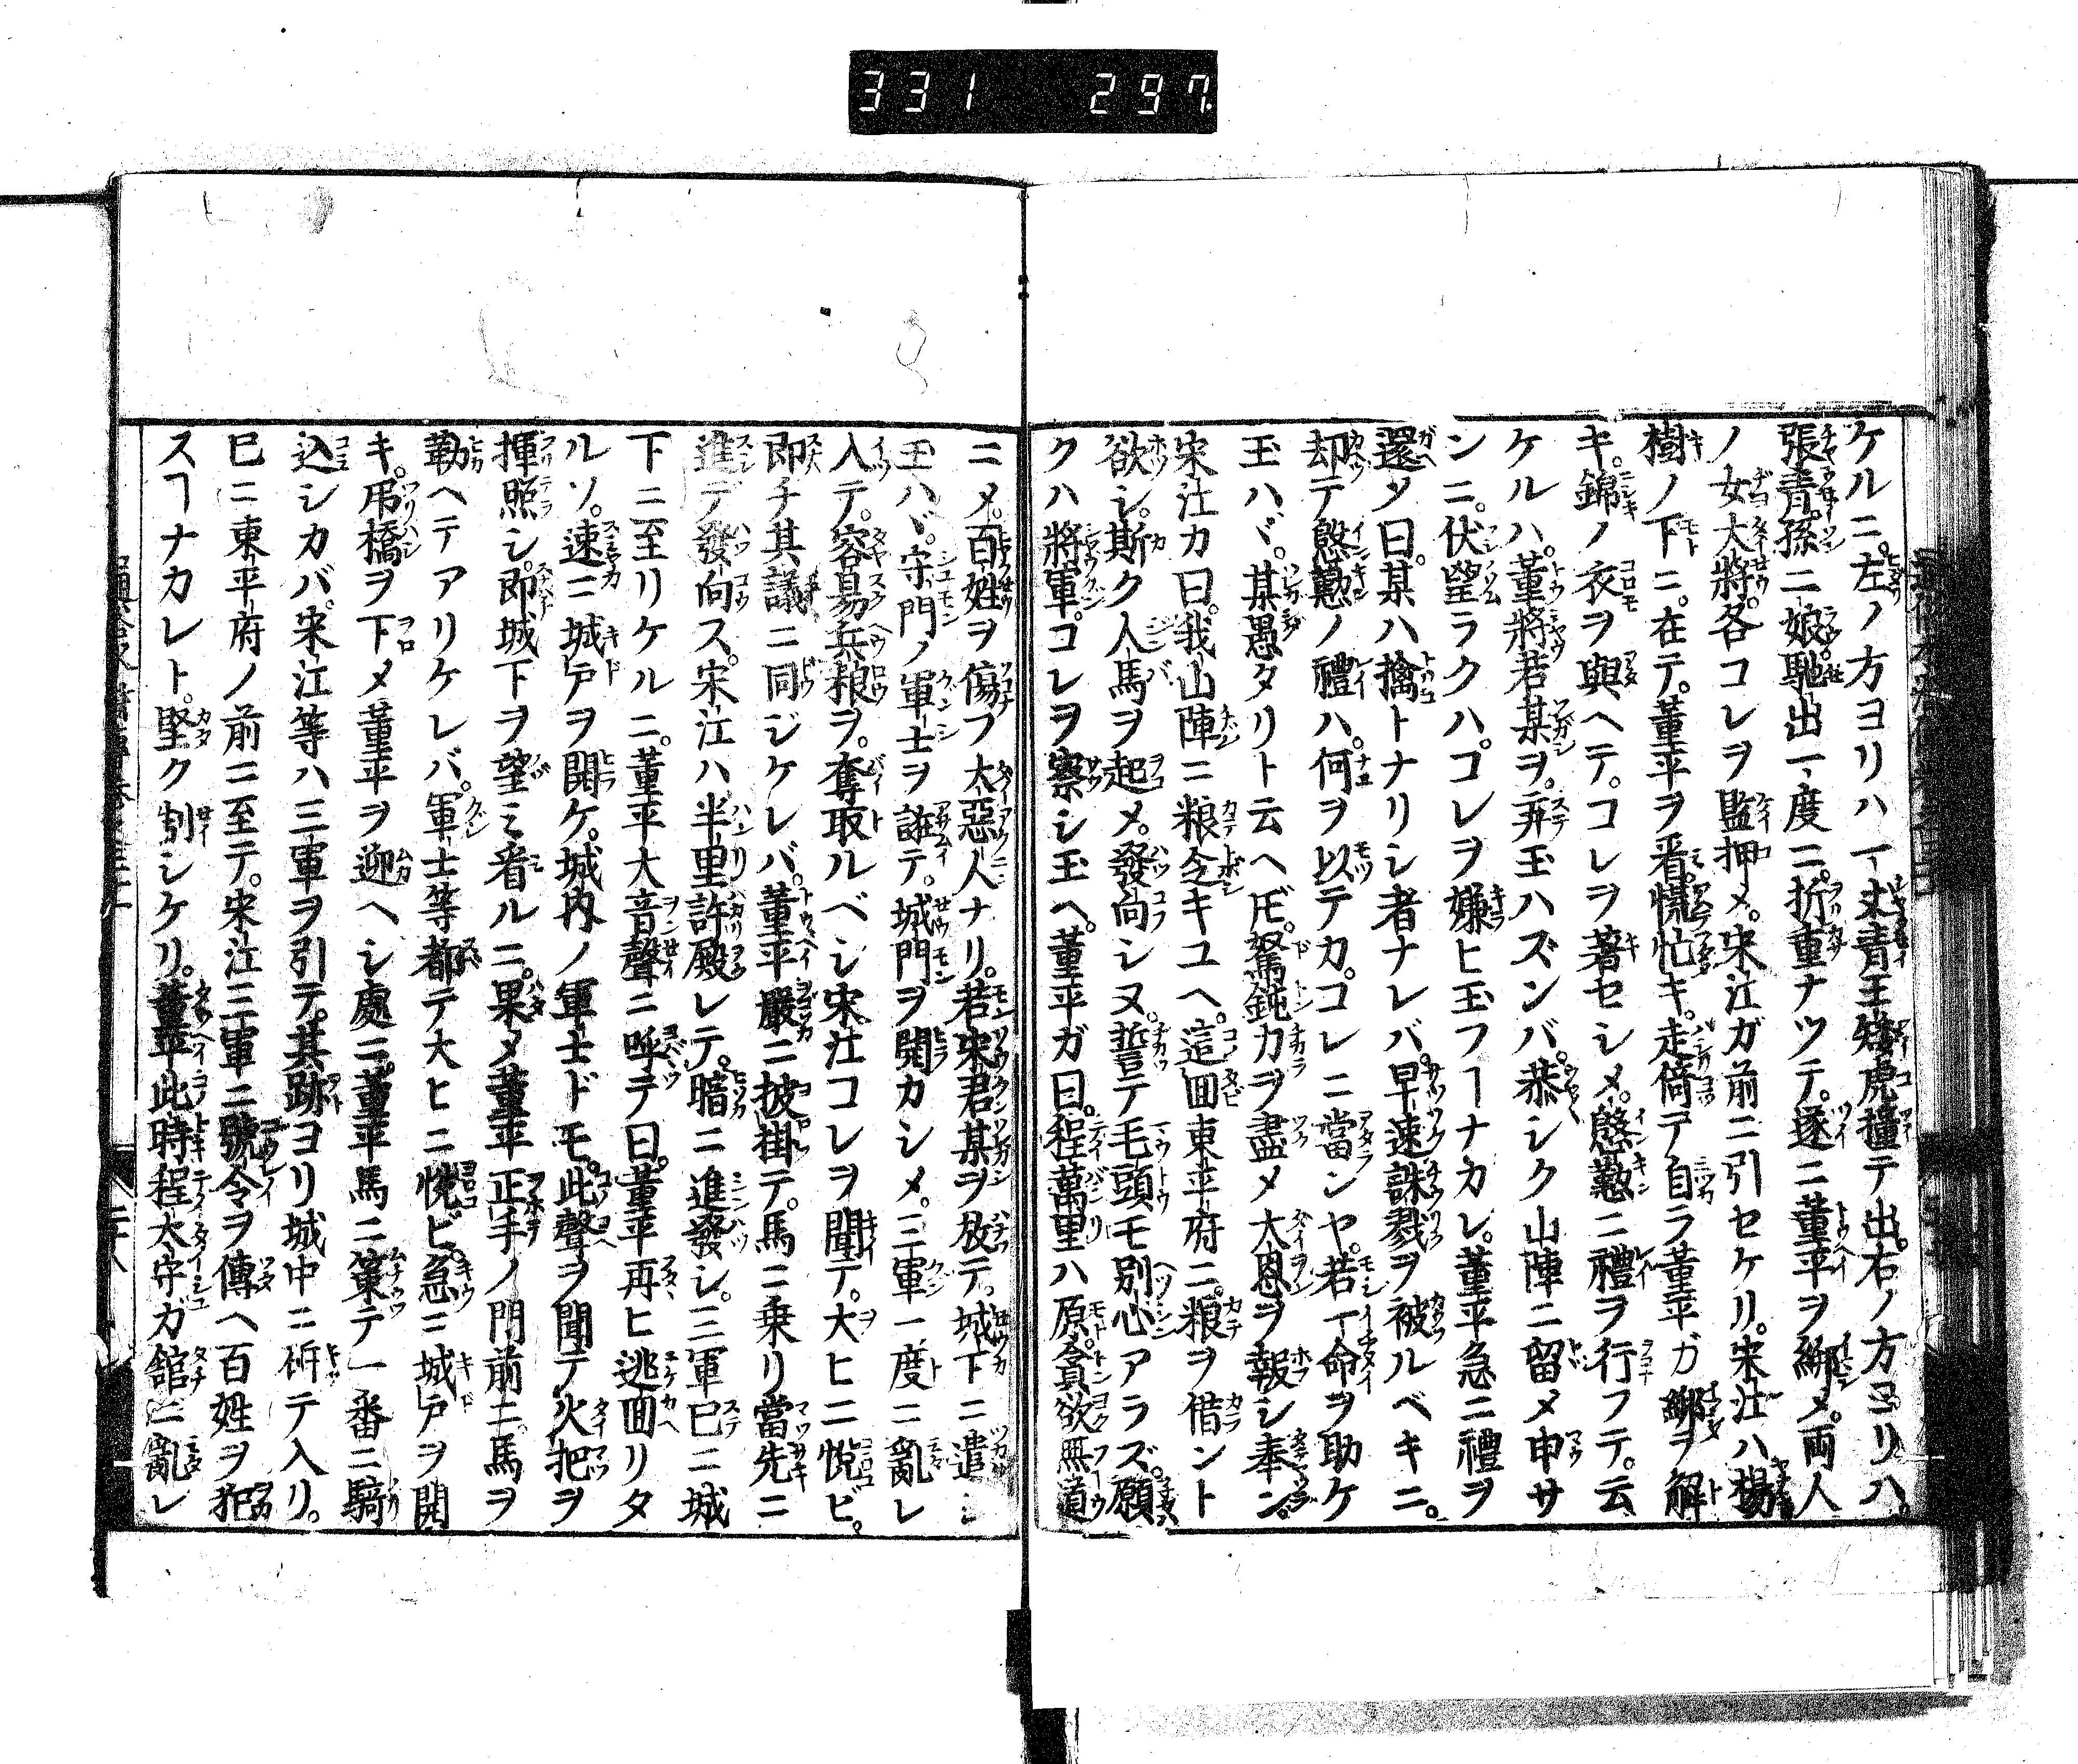 331 297
ケルニ。左ノ方ヨリハ一丈青王矮虎撞テ出。右ノ方ヨリハ。
張青。孫二娘。馳出一度ニ。折重ナツテ。遂ニ董平ヲ綁メ。両人
ノ女大將。各コレヲ監押メ。宋江ガ前ニ引セケリ。宋江ハ楊
樹ノ下ニ。在テ。董平ヲ看。慌忙キ。走倚テ自ラ董平ガ綁ヲ解
キ。錦ノ衣ヲ與ヘテ。コレヲ著セシメ。慇懃ニ禮ヲ行フテ。云
ケルハ。董將若某ヲ。弃玉ハズンバ。恭シク山陣ニ留メ申サ
ンニ。伏望ラクハ。コレヲ嫌ヒ玉フヿナカレ。董平急ニ禮ヲ
還メ曰。某ハ擒トナリシ者ナレバ。早速誅戮ヲ被ルベキニ。
却テ慇懃ノ禮ハ。何ヲ以テカ。コレニ當ンヤ。若一命ヲ助ケ
玉ハヾ。某愚タリト云ヘ𪜈。駑鈍カヲ盡メ大恩ヲ報シ奉ン。
宋江カ曰。我山陣ニ粮乏キユヘ。這囬東平府ニ。粮ヲ借ント
欲シ。斯ク人馬ヲ起メ。發向シヌ。誓テ毛頭モ別心アラズ。願
クハ將軍。コレヲ察シ玉ヘ。董平ガ曰。程萬里ハ原。貪欲無道
ニメ。百姓ヲ傷フ大惡人ナリ。若宋君某ヲ放テ。城下ニ遣シ
玉ハヾ。守門ノ軍士ヲ誑テ。城門ヲ開カシメ。三軍一度ニ亂レ
入テ。容易兵粮ヲ。奪取ルベシ宋江コレヲ聞テ。大ヒニ悦ビ。
即チ其議ニ同ジケレバ。董平嚴ニ披掛テ。馬ニ乗リ當先ニ
進デ發向ス。宋江ハ半里許殿レテ。暗ニ進發シ。三軍已ニ城
下ニ至リケルニ。董平大音聲ニ呼テ曰。董平再ヒ逃囬リタ
ルソ。速ニ城戸ヲ開ケ。城内ノ軍士ドモ。此聲ヲ聞テ火把ヲ
揮照シ。即城下ヲ望ミ看ルニ。果メ董平正手ノ門前ニ。馬ヲ
勒ヘテアリケレバ。軍士等都テ大ヒニ悦ビ。急ニ城戸ヲ開
キ。吊橋ヲ下メ董平ヲ迎ヘシ處ニ。董平馬ニ策テ一番ニ騎
込シカバ。宋江等ハ三軍ヲ引テ。其跡ヨリ城中ニ斫テ入リ。
已ニ東平府ノ前ニ至テ。宋江三軍ニ號令ヲ傳ヘ百姓ヲ犯
スヿナカレト。堅ク制シケリ。董平此時程太守ガ舘ニ亂レ